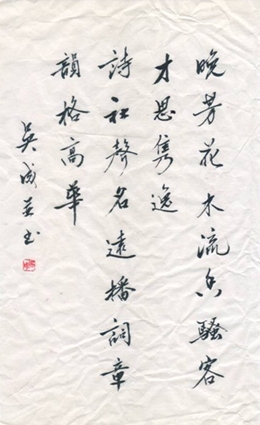 晚芳花木流香騷客
才思雋逸
詩社聲名遠播詞章
韻格高華
吳成至书